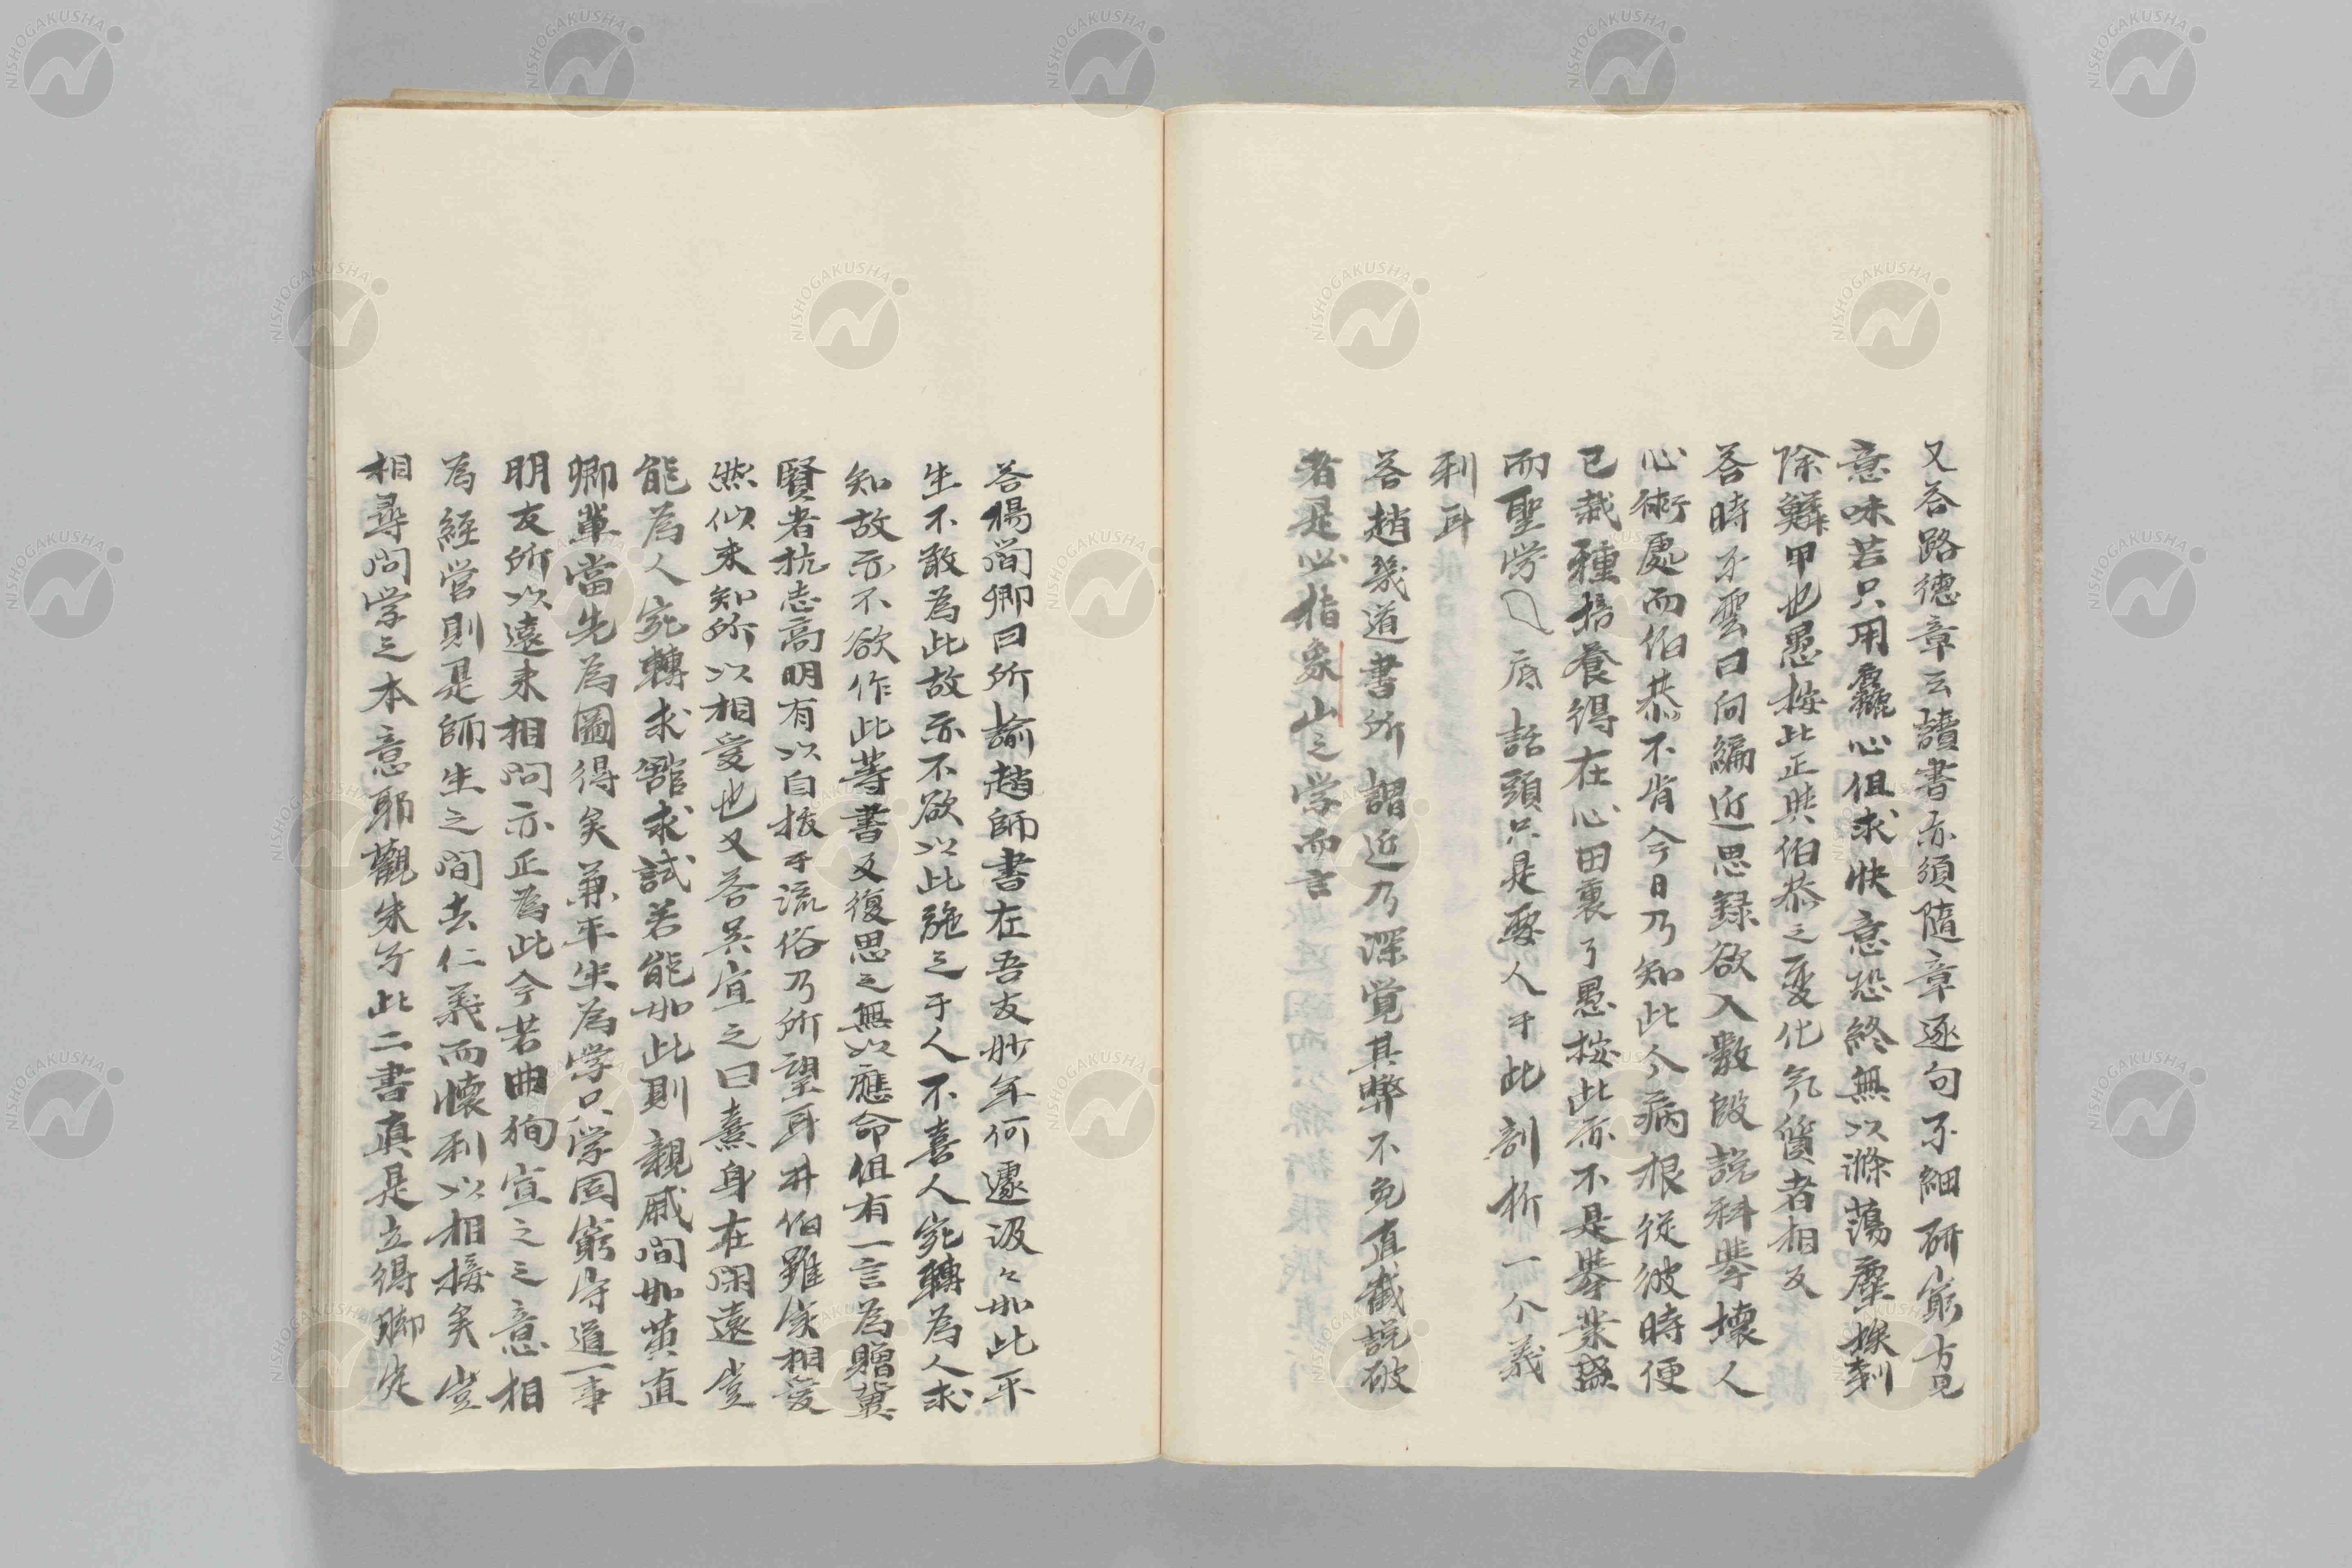 又答路德章云讀書亦須隨章逐句子細研窮方見
意味若只用麤心但求快意恐終無以滌蕩塵埃剗
除鱗甲也愚按此正與伯恭之變化気質者相反
答時子雲曰向編近思録欲入數段説科挙壊人
心術處而伯恭不肯今日乃知此个病根従彼時便
已栽種培養得在心田裏了愚按此亦不是挙業盛
而聖学底話頭只是要人于此剖析一个義
利耳
答趙幾道書所謂近乃深覚其弊不免直截説破
者是必指象山之学而言
答楊簡卿曰所諭趙師書在吾友妙年何遽汲々如此平
生不敢為此故亦不欲以此施之于人不喜人宛轉為人求
知故亦不欲作此等書反復思之無以應命但有一言為贈冀
賢者抗志高明有以自拔于流俗乃所望耳井伯雖深相愛
然似未知所以相愛也又答呉宜之曰熹身在閑遠豈
能為人宛轉求館求試若能如此則親戚間如黄直
卿輩當先為圖得矣兼平生為学只学固窮守道一事
朋友所以遠来相問亦正為此今若曲徇宜之之意相
為経営則是師生之間去仁義而懐利以相接矣豈
相尋問学之本意耶觀朱子此二書真是立得脚定
NISHOGAKUSHA